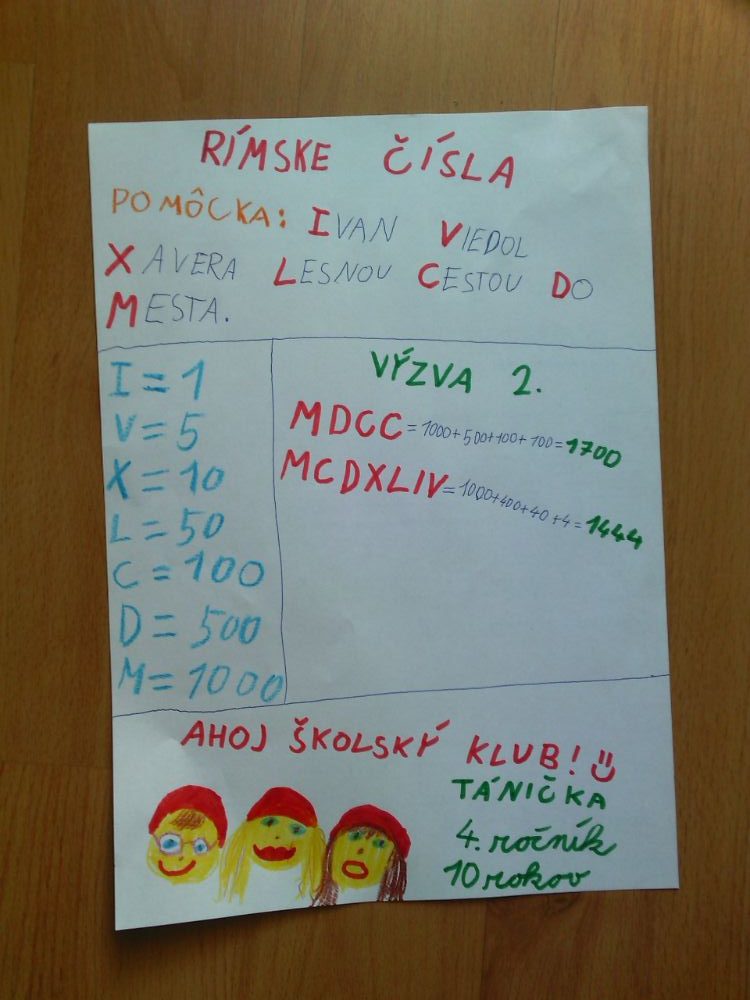 RÍMSKE ČÍSLA
POMÔCKA: IVAN VIEDOL
XAVERA LESNOU CESTOU DO
MESTA.
I = 1
V = 5
X = 10
L = 50
C = 100
D = 500
M = 1000
VÝZVA 2.
MDCC = 1000+500+100+100=1700
MCDXLIV=1000+400+40+4=1444
AHOJ ŠKOLSKÝ KLUB!
TÁNIČKA
4. ročník
10 rokov